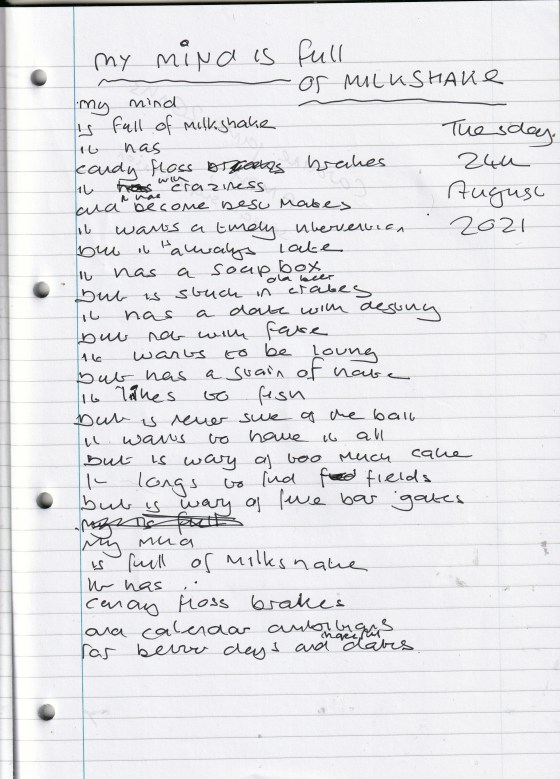 my mind is full
of MILKSHAKE
my mind
is full of milkshake
it has
candy floss brakes
it with craziness
and have become best mates
it wants a timely intervention
but it is always late
it has a soap box
but is stuck in old beer crates
it has a date with destiny
but not with fate
it wants to be loving
but has a stain of hate
it likes to fish
but is never sure of the bait
it wants to have it all
but is wary of too much cake
It longs to find fields
but is wary of five bar gates
my is full
my mind
is full of milkshake
it has
candy floss brakes
and calendar ambitions
for better days and dates
Tuesday
24th
August
2021